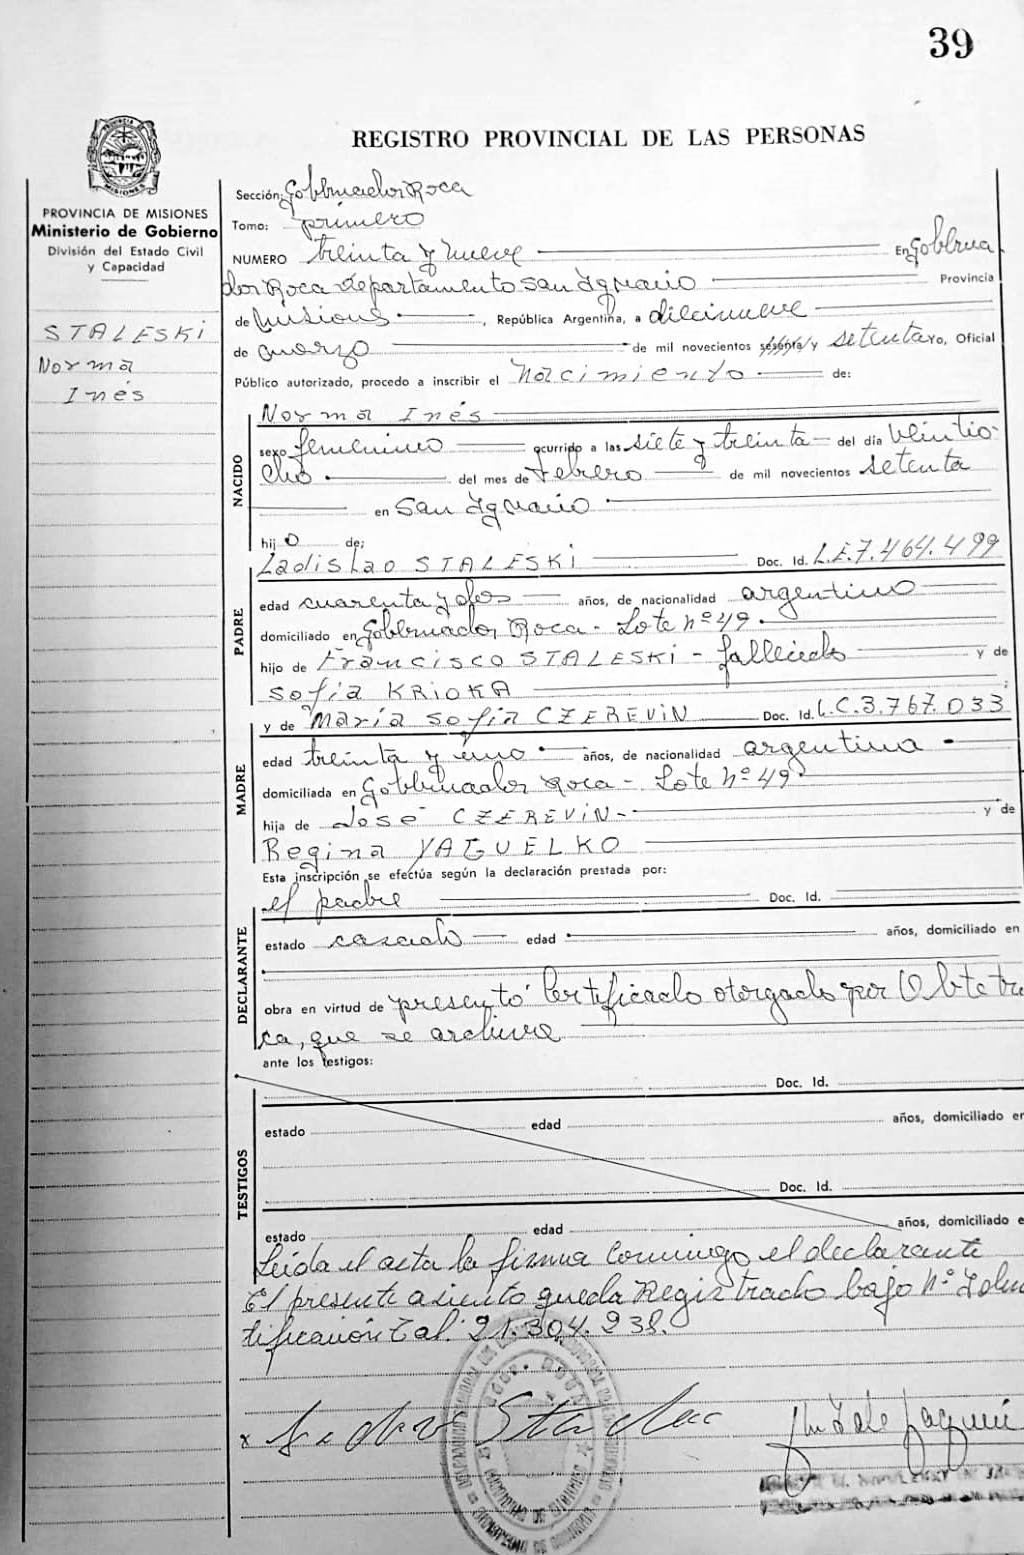 39
REGISTRO PROVINCIAL DE LAS PERSONAS
PROVINCIA DE MISIONES
Ministerio de Gobierno
División del Estado Civil
y Capacidad
STALESKI
Norma
Inés
Sección: Gobernador Roca
Tomo: primero
NUMERO treinta y nueve En Goberna
dor Roca departamento San Ignacio Provincia
de Misiones, República Argentina, a diecinueve
de marzo de mil novecientos sesenta y setenta yo, Oficial
Público autorizado, procedo a inscribir el Nacimiento de:
NACIDO
Norma Inés
sexo femenino ocurrido a las siete y treinta del día veintio
cho del mes de Febrero de mil novecientos setenta
en San Ignacio
hijo de:
PADRE
Ladislao STALESKI Doc. Id. L.E.7.464.499
edad cuarenta y dos años, de nacionalidad argentino
domiciliado en Gobernador Roca - Lote nº 49.
hijo de Francisco STALESKI - fallecido y de
Sofía KRIOKA
MADRE
y de María Sofía CZEREVIN Doc. Id. L.C.3.767.033
edad treinta y uno años, de nacionalidad argentina
domiciliada en Gobernador Roca - Lote Nº 49
hija de José CZEREVIN - y de
Regina YAGUELKO
Esta inscripción se efectúa según la declaración prestada por:
DECLARANTE
el padre Doc. Id.
estado casado edad años, domiciliado en
obra en virtud de presentó Certificado otorgado por Obtetri
ca, que se archiva
ante los testigos:
TESTIGOS
Doc. Id.
estado edad años, domiciliado en
Doc. Id.
estado edad años, domiciliado e
Leida el acta la firma conmigo el declarante
El presente asiento queda Registrado bajo Nº Iden
tificación Tal. 21.304.238.
x